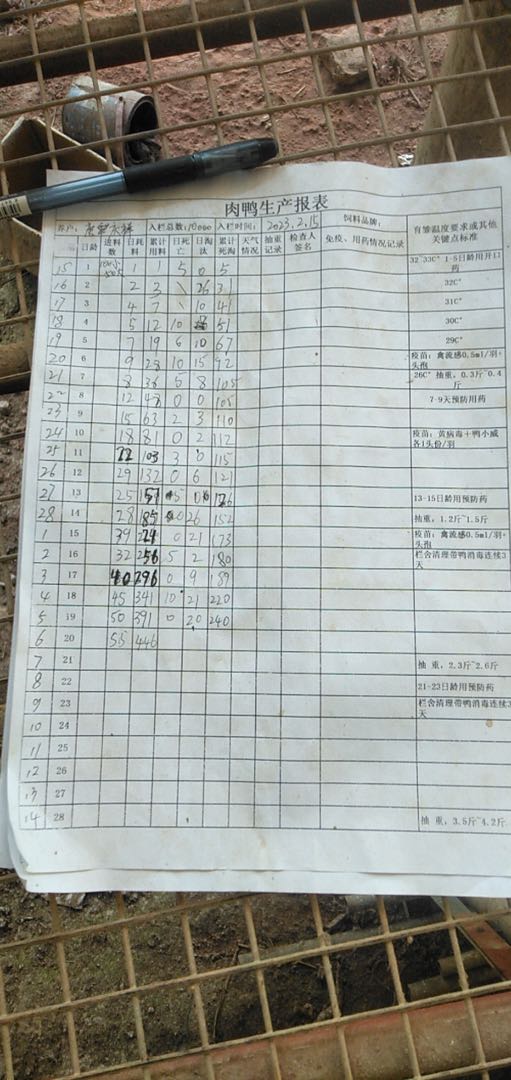 肉鸭生产报表
客户: 入栏总数:10000 入栏时间: 2023.2.15 饲料品牌:
日龄 进料数 日耗料 累计用料 日死亡 日淘汰 累计死淘 天气情况 抽重记录 检查人签名 免疫、用药情况记录 育雏温度要求或其他关键点标准
15 1 1 1 5 0 5 32~33C° 1-5日龄用开口药
16 2 2 3 \ 26 31 32C°
17 3 4 7 \ 10 41 31C°
18 4 5 12 10 51 30C°
19 5 7 19 6 10 67 29C°
20 6 9 28 10 15 92 疫苗:禽流感0.5ml/羽+头孢
21 7 8 36 5 8 105 26C° 抽重,0.3斤~0.4斤
22 8 12 48 0 0 105 7-9天预防用药
23 9 15 63 2 3 110
24 10 18 81 0 2 112 疫苗:黄病毒+鸭小威各1头份/羽
25 11 22 103 3 0 115
26 12 29 132 0 6 121
27 13 25 5 126 13-15日龄用预防药
28 14 28 26 152 抽重,1.2斤~1.5斤
1 15 39 0 21 173 疫苗:禽流感0.5ml/羽+头孢
2 16 32 256 5 2 180 栏舍清理带鸭消毒连续3天
3 17 40 296 0 9 189
4 18 45 341 10 21 220
5 19 50 391 0 20 240
6 20 55 446
7 21 抽 重,2.3斤~2.6斤
8 22 21-23日龄用预防药
9 23 栏舍清理带鸭消毒连续3天
10 24
11 25
12 26
13 27
14 28 抽 重,3.5斤~4.2斤